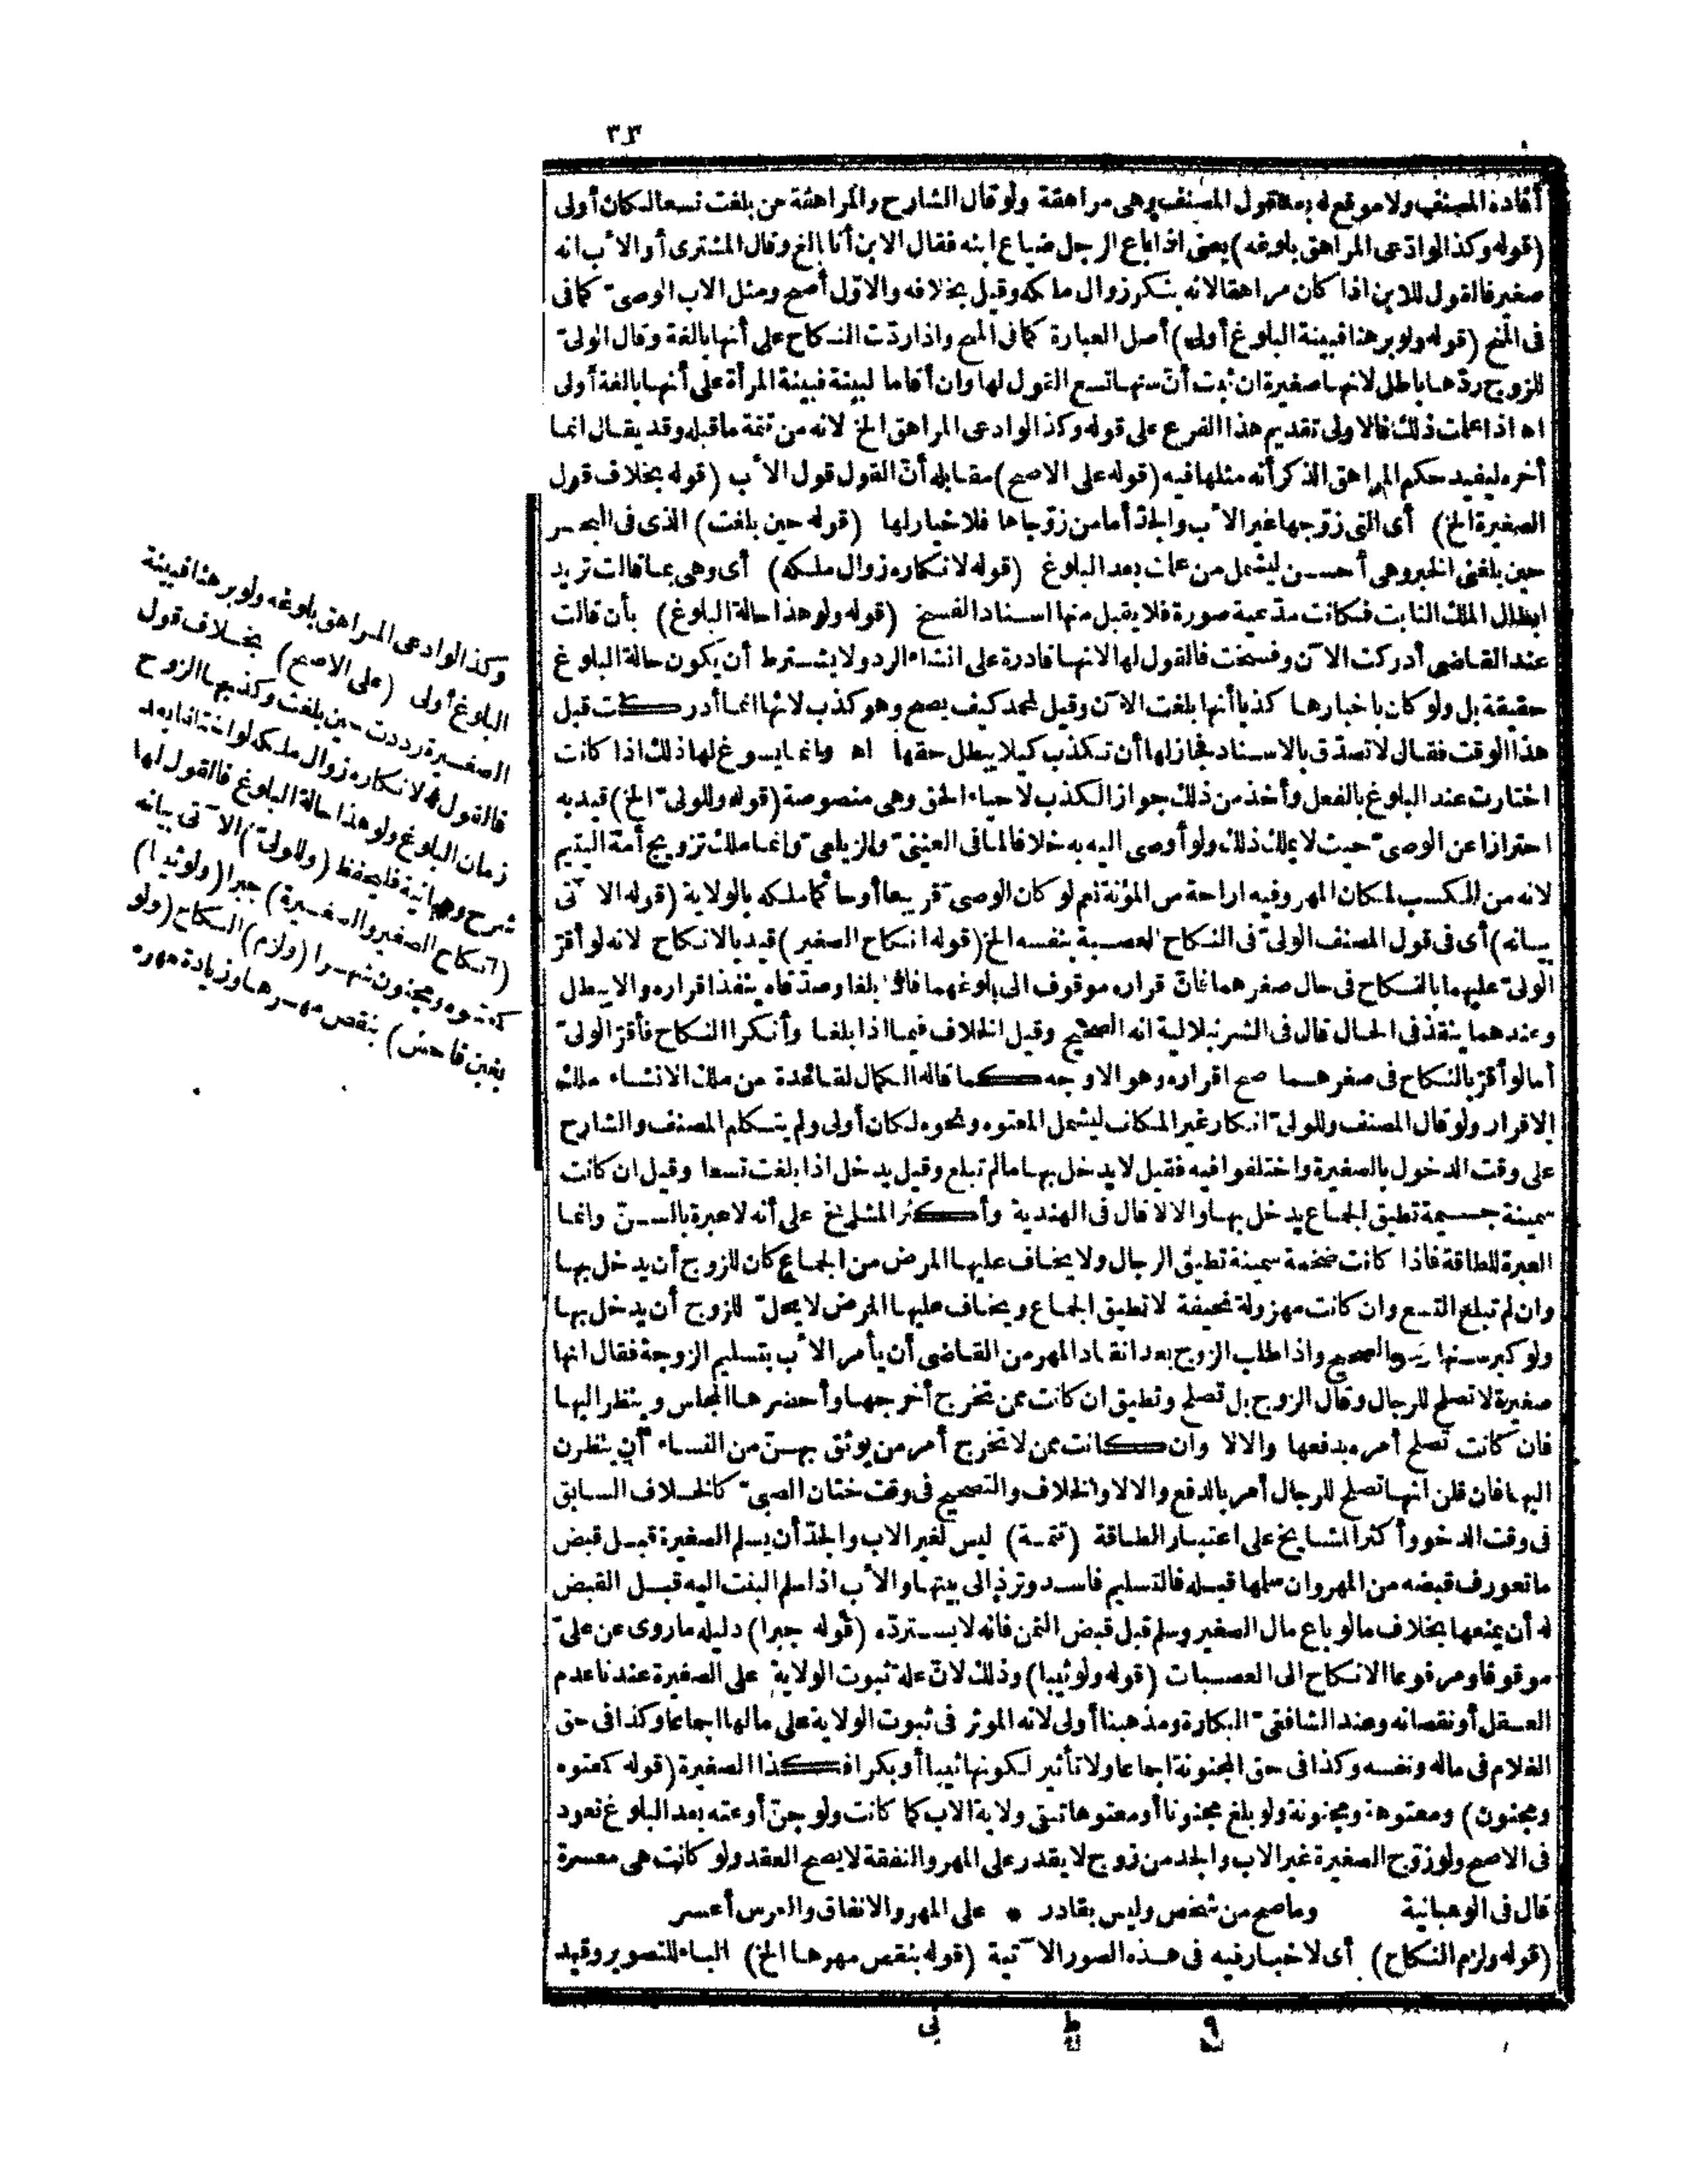 ٣٣
أفاده المصنف ولا موقع له بعد قول المصنف وهى مراهقة ولو قال الشارح والمراهقة من بلغت تسعا لكان أولى
(قوله وكذا لو ادعى المراهق بلوغه) يعنى اذا باع الرجل ضياع ابنه فقال الابن أنا بالغ وقال المشترى أو الأب انه
صغير فالقول للابن اذا كان مراهقا لانه ينكر زوال ملكه وقيل بخلافه والاوّل أصح ومثل الاب الوصىّ كما فى
فى المنح (قوله ولو برهنا فبينة البلوغ أولى) أصل العبارة كما فى المنح واذا ردّت النكاح على أنها بالغة وقال الولىّ
للزوج ردّها باطل لانها صغيرة ان ثبت أنّ سنها تسع القول لها وان أقاما لبينة فبينة المرأة على أنها بالغة أولى
اه اذا علمت ذلك فالاولى تقديم هذا الفرع على قوله وكذا لو ادعى المراهق الخ لانه من تتمة ما قبله وقد يقال انما
أخره ليفيد حكم المراهق الذكر أنه مثلها فيه (قوله على الاصح) مقابله أنّ القول قول الأب (قوله بخلاف قول
الصغيرة الخ) أى التى زوّجها غير الأب والجدّ أما من زوّجاها فلا خيار لها (قوله حين بلغت) الذى فى البحر
حين بلغنى الخبر وهى أحسن ليشمل من علمت بعد البلوغ (قوله لانكاره زوال ملكه) أى وهى بما قالت تريد
ابطال الملك الثابت فكانت مدّعية صورة فلا يقبل منها اسناد الفسخ (قوله ولو هذا حالة البلوغ) بأن قالت
عند القاضى أدركت الآن وفسخت فالقول لها لانها قادرة على انشاء الرد ولا يشترط أن يكون حالة البلوغ
حقيقة بل ولو كان باخبارها كذبا أنها بلغت الآن وقيل لمحمد كيف يصح وهو كذب لانها انما أدركت قبل
هذا الوقت فقال لا تصدّق بالاسناد فجاز لها أن تكذب كيلا يبطل حقها اه وانما يسوغ لها ذلك اذا كانت
اختارت عند البلوغ بالفعل وأخذ من ذلك جواز الكذب لاحياء الحق وهى منصوصة (قوله وللولىّ الخ) قيد به
احترازا عن الوصىّ حيث لا يملك ذلك ولو أوصى اليه به خلافا لما فى العينىّ والزيلعىّ وانما ملك تزويج أمة اليتيم
لانه من الكسب لمكان المهر وفيه اراحة من المؤنة نعم لو كان الوصىّ قريبا أو حاكما ملكه بالولاية (قوله الآتى
بيانه) أى فى قول المصنف الولىّ فى النكاح العصبة بنفسه الخ (قوله انكاح الصغير) قيد بالانكاح لانه لو أقرّ
الولىّ عليهما بالنكاح فى حال صغرهما فانّ قراره موقوف الى بلوغهما فاذا بلغا وصدّقاه ينفذ اقراره والا يبطل
وعندهما ينفذ فى الحال قال فى الشرنبلالية انه الصحيح وقيل الخلاف فيما اذا بلغا وأنكرا النكاح فأقرّ الولىّ
أما لو أقرّ بالنكاح فى صغرهما صح اقراره وهو الاوجه كما قاله الكمال لقاعدة من ملك الانشاء ملك
الاقرار ولو قال المصنف وللولىّ انكاح غير المكلف ليشمل المعتوه ونحوه لكان أولى ولم يتكلم المصنف والشارح
على وقت الدخول بالصغيرة واختلفوا فيه فقيل لا يدخل بها ما لم تبلغ وقيل يدخل اذا بلغت تسعا وقيل ان كانت
سمينة جسيمة تطيق الجماع يدخل بها والا لا قال فى الهندية وأكثر المشايخ على أنه لا عبرة بالسنّ وانما
العبرة للطاقة فاذا كانت ضخمة سمينة تطيق الرجال ولا يخاف عليها المرض من الجماع كان للزوج أن يدخل بها
وان لم تبلغ التسع وان كانت مهزولة نحيفة لا تطيق الجماع ويخاف عليها المرض لا يحلّ للزوج أن يدخل بها
ولو كبر سنها هو الصحيح واذا طلب الزوج بعد انقاد المهر من القاضى أن يأمر الأب بتسليم الزوجة فقال انها
صغيرة لا تصلح للرجال وقال الزوج بل تصلح وتطيق ان كانت ممن تخرج أخرجها وأحضرها المجلس وينظر اليها
فان كانت تصلح أمره بدفعها والا لا وان كانت ممن لا تخرج أمر من يوثق بهنّ من النساء أن ينظرن
اليها فان قلن انها تصلح للرجال أمر بالدفع والا لا والخلاف والتصحيح فى وقت ختان الصبىّ كالخلاف السابق
فى وقت الدخو وأكثر المشايخ على اعتبار الطاقة (تتمة) ليس لغير الاب والجدّ أن يسلم الصغيرة قبل قبض
ما تعورف قبضه من المهر وان سلمها قبله فالتسليم فاسد وتردّ الى بيتها والأب اذا سلم البنت اليه قبل القبض
له أن يمنعها بخلاف ما لو باع مال الصغير وسلم قبل قبض الثمن فانه لا يستردّه (قوله جبرا) دليله ما روى عن علىّ
موقوفا ومرفوعا الانكاح الى العصبات (قوله ولو ثيبا) وذلك لانّ علة ثبوت الولاية على الصغيرة عندنا عدم
العقل أو نقصانه وعند الشافعىّ البكارة ومذهبنا أولى لانه الموثر فى ثبوت الولاية على مالها اجماعا وكذا فى حق
الغلام فى ماله ونفسه وكذا فى حق المجنونة اجماعا ولا تأثير لكونها ثيبا أو بكرا فكذا الصغيرة (قوله كمعتوه
ومجنون) ومعتوهة ومجنونة ولو بلغ مجنونا أو معتوها تبقى ولاية الاب كما كانت ولو جنّ أو عته بعد البلوغ تعود
فى الاصح ولو زوّج الصغيرة غير الاب والجد من زوج لا يقدر على المهر والنفقة لا يصح العقد ولو كانت هى معسرة
قال فى الوهبانية وما صح من شخص وليس بقادر * على المهر والانفاق والعرس أعسر
(قوله ولزم النكاح) أى لا خيار فيه فى هذه الصور الآتية (قوله بنقص مهرها الخ) الباء للتصوير وقيد
وكذا لو ادعى المراهق بلوغه ولو برهنا فبينة
البلوغ أولى (على الاصح) بخلاف قول
الصغيرة رددت حين بلغت وكذبها الزوج
فالقول له لانكاره زوال ملكه لو اختلفا بعد
زمان البلوغ ولو هذا حالة البلوغ فالقول لها
شرح وهبانية فليحفظ (وللولىّ) الآتى بيانه
(انكاح الصغير والصغيرة) جبرا (ولو ثيبا)
كمعتوه ومجنون شهرا (ولزم) النكاح (ولو
بغبن فاحش) بنقص مهرها وزيادة مهره
٩ ط نى